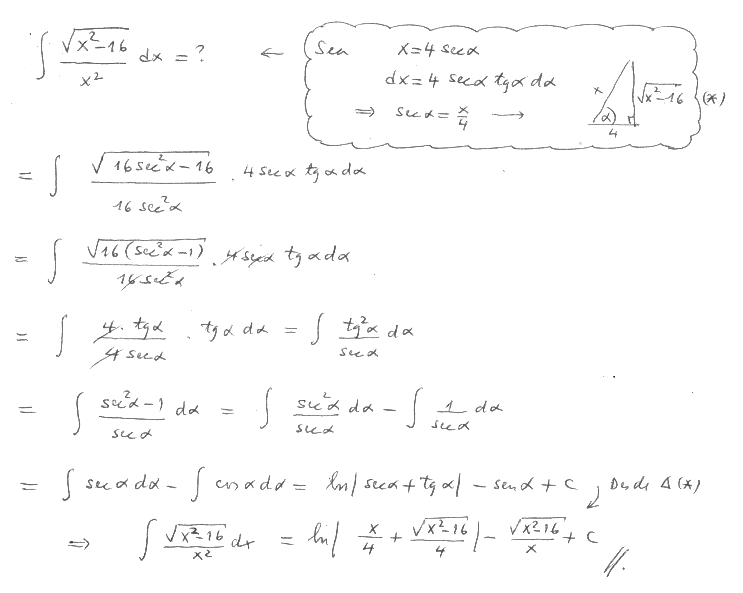 ∫ √(x²-16) / x² dx = ? ← Sea x = 4 secα
dx = 4 secα tgα dα
⇒ secα = x/4 →
x α 4 √(x²-16) (*)
= ∫ √(16sec²α - 16) / 16 sec²α . 4 secα tgα dα
= ∫ √(16(sec²α-1)) / 16 sec²α . 4 secα tgα dα
= ∫ 4. tgα / 4 secα . tgα dα = ∫ tg²α / secα dα
= ∫ (sec²α-1) / secα dα = ∫ sec²α / secα dα - ∫ 1 / secα dα
= ∫ secα dα - ∫ cosα dα = ln|secα + tgα| - senα + C Desde Δ (*)
⇒ ∫ √(x²-16) / x² dx = ln| x/4 + √(x²-16) / 4 | - √(x²-16) / x + C //.